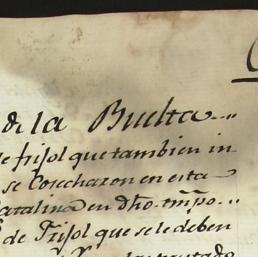 de la Buelta
de frisol que tambien in
se Cosecharon en esta
Catalina en dho. tmpo.
s de Frisol que se le deben